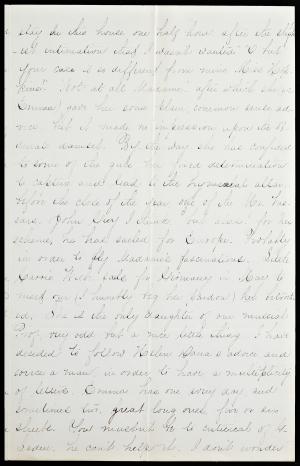 stay in this house one half hour after the slight
est intimation that I wasn't wanted" "O but
your case is so different from mine Miss
" "Not at all Madame" after which she (
Emma) gave her some plain, common sense ad
vice. But it made no impression upon the
damsel. By the way she has confided
to some of the girls her fixed determination
to capture and lead to the hymeneal altar,
before the close of the year one of the
John I think our area for her
scheme, he has sailed for Europe. Probably
in order to fly Madame's fascinations.
Carrie sails for Germany in May to
meet our (I humbly beg her pardon) her betroth
ed. She is the only daughter of our musical
Prof. very odd but a nice little thing. I have
decided to follow Helen advice and
a man, in order to have a multiplicity
of letters. Emma has one every day and
sometimes two, great long ones, five or six
sheets. You mustn't be so critical of
he can't help it. I don't wonder